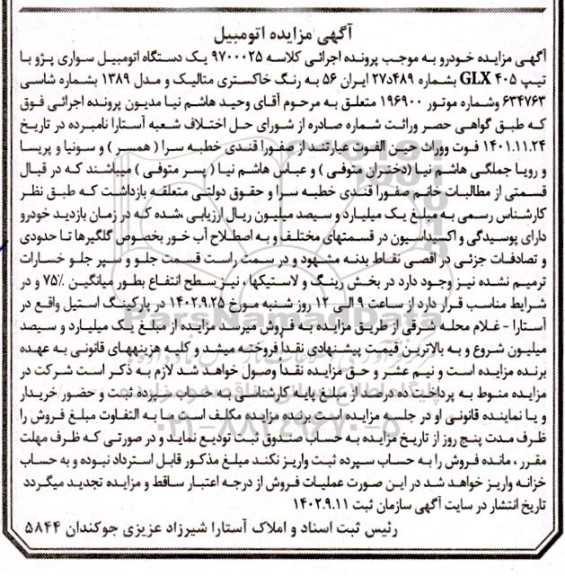 آگهی مزایده اتومبیل
آگهی مزایده خودرو به موجب پرونده اجرائی کلاسه ۹۷۰۰۰۲۵ یک دستگاه اتومبیل سواری پژو با
تیپ ۴۰۵ GLX بشماره ۴۸۹د۲۷ ایران ۵۶ به رنگ خاکستری متالیک و مدل ۱۳۸۹ بشماره شاسی
۶۳۴۷۶۳ وشماره موتور ۱۹۶۹۰۰ متعلق به مرحوم آقای وحید هاشم نیا مدیون پرونده اجرائی فوق
که طبق گواهی حصر وراثت شماره صادره از شورای حل اختلاف شعبه آستارا نامبرده در تاریخ
۱۴۰۱.۱۱.۲۴ فوت ووراث حین الفوت عبارتند از صفورا قندی خطبه سرا ( همسر ) و سونیا و پریسا
و رویا جملگی هاشم نیا (دختران متوفی ) و عباس هاشم نیا ( پسر متوفی ) میباشند که در قبال
قسمتی از مطالبات خانم صفورا قندی خطبه سرا و حقوق دولتی متعلقه بازداشت که طبق نظر
کارشناس رسمی به مبلغ یک میلیارد و سیصد میلیون ریال ارزیابی ،شده که در زمان بازدید خودرو
دارای پوسیدگی و اکسیداسیون در قسمتهای مختلف و به اصطلاح آب خور بخصوص گلگیرها تا حدودی
و تصادفات جزئی در اقصی نقاط بدنه مشهود و در سمت راست قسمت جلو و سپر جلو خسارات
ترمیم نشده نیز وجود دارد در بخش رینگ و لاستیکها ، نیز سطح انتفاع بطور میانگین ۷۵٪ و در
شرایط مناسب قرار دارد از ساعت ۹ الی ۱۲ روز شنبه مورخ ۱۴۰۲.۹.۲۵ در پارکینگ استیل واقع در
آستارا - غلام محله شرقی از طریق مزایده به فروش میرسد مزایده از مبلغ یک میلیارد و سیصد
میلیون شروع و به بالاترین قیمت پیشنهادی نقدا فروخته میشد و کلیه هزینههای قانونی به عهده
برنده مزایده است و نیم عشر و حق مزایده نقدا وصول خواهد شد لازم به ذکر است شرکت در
مزایده منوط به پرداخت ده درصد از مبلغ پایه کارشناسی به حساب سپرده ثبت و حضور خریدار
و یا نماینده قانونی او در جلسه مزایده است برنده مزایده مکلف است ما به التفاوت مبلغ فروش را
ظرف مدت پنج روز از تاریخ مزایده به حساب صندوق ثبت تودیع نماید و در صورتی که ظرف مهلت
مقرر ، مانده فروش را به حساب سپرده ثبت واریز نکند مبلغ مذکور قابل استرداد نبوده و به حساب
خزانه واریز خواهد شد در این صورت عملیات فروش از درجه اعتبار ساقط و مزایده تجدید میگردد
تاریخ انتشار در سایت آگهی سازمان ثبت ۱۴۰۲.۹.۱۱
رئیس ثبت اسناد و املاک آستارا شیرزاد عزیزی جوکندان ۵۸۴۴
ParsNamadData
۰۲۱-۸۸۳۴۹۶۷۰-۵